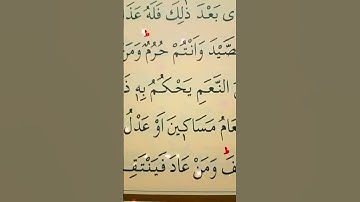 ى بَعْدَ ذٰلِكَ فَلَهُ عَذَا
الصَّيْدَ وَاَنْتُمْ حُرُمٌ وَمَنْ
النَّعَمِ يَحْكُمُ بِهٖ ذَ
عَامُ مَسَاكٖينَ اَوْ عَدْلُ
فَ وَمَنْ عَادَ فَيَنْتَقِ